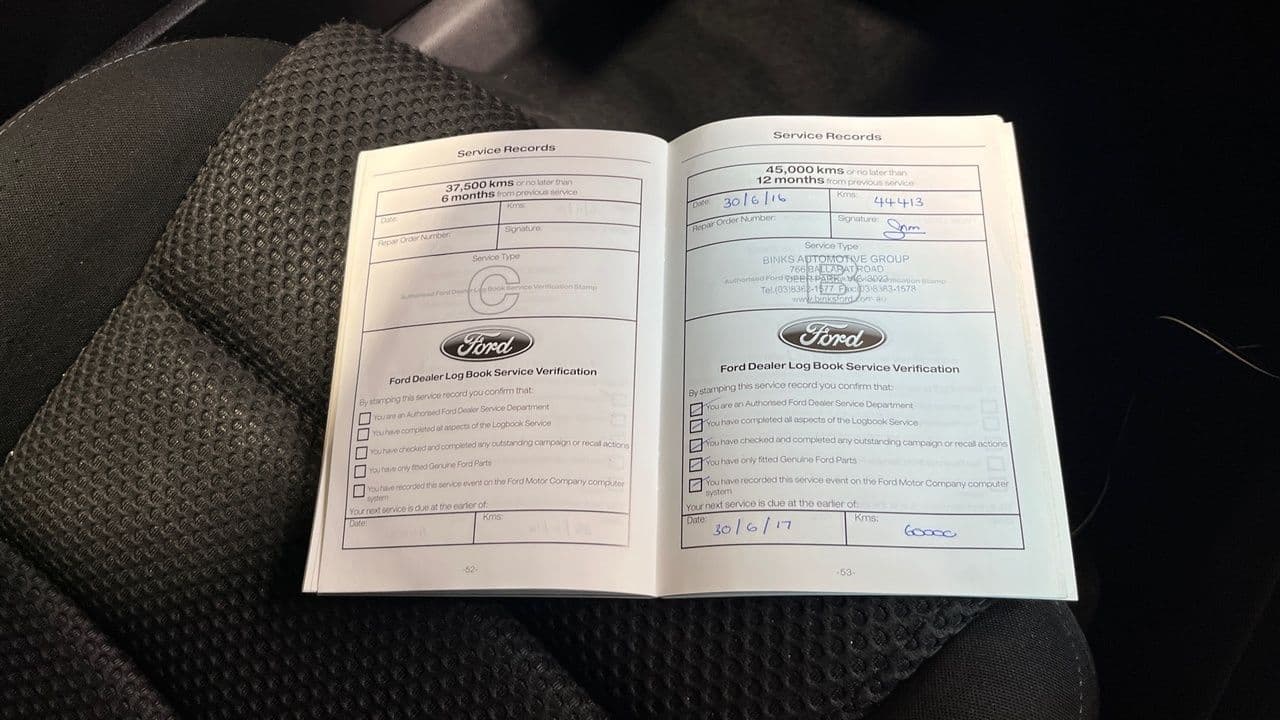 Service Records
37,500 kms or no later than
6 months from previous service
Date:
Kms:
Repair Order Number:
Signature:
Service Type
C
Authorised Ford Dealer Log Book Service Verification Stamp
Ford
Ford Dealer Log Book Service Verification
By stamping this service record you confirm that:
You are an Authorised Ford Dealer Service Department
You have completed all aspects of the Logbook Service
You have checked and completed any outstanding campaign or recall actions
You have only fitted Genuine Ford Parts
You have recorded this service event on the Ford Motor Company computer
system
Your next service is due at the earlier of:
Date:
Kms:
-52-
Service Records
45,000 kms or no later than
12 months from previous service
Date: 30/6/16
Kms: 44413
Repair Order Number:
Signature:
Service Type
B
BINKS AUTOMOTIVE GROUP
766 BALLARAT ROAD
Authorised Ford Verification Stamp
DEER PARK 3023
Tel.(03)8363-1577 Fax:(03)8363-1578
www.binksford.com.au
Ford
Ford Dealer Log Book Service Verification
By stamping this service record you confirm that:
You are an Authorised Ford Dealer Service Department
You have completed all aspects of the Logbook Service
You have checked and completed any outstanding campaign or recall actions
You have only fitted Genuine Ford Parts
You have recorded this service event on the Ford Motor Company computer
system
Your next service is due at the earlier of:
Date: 30/6/17
Kms: 60000
-53-